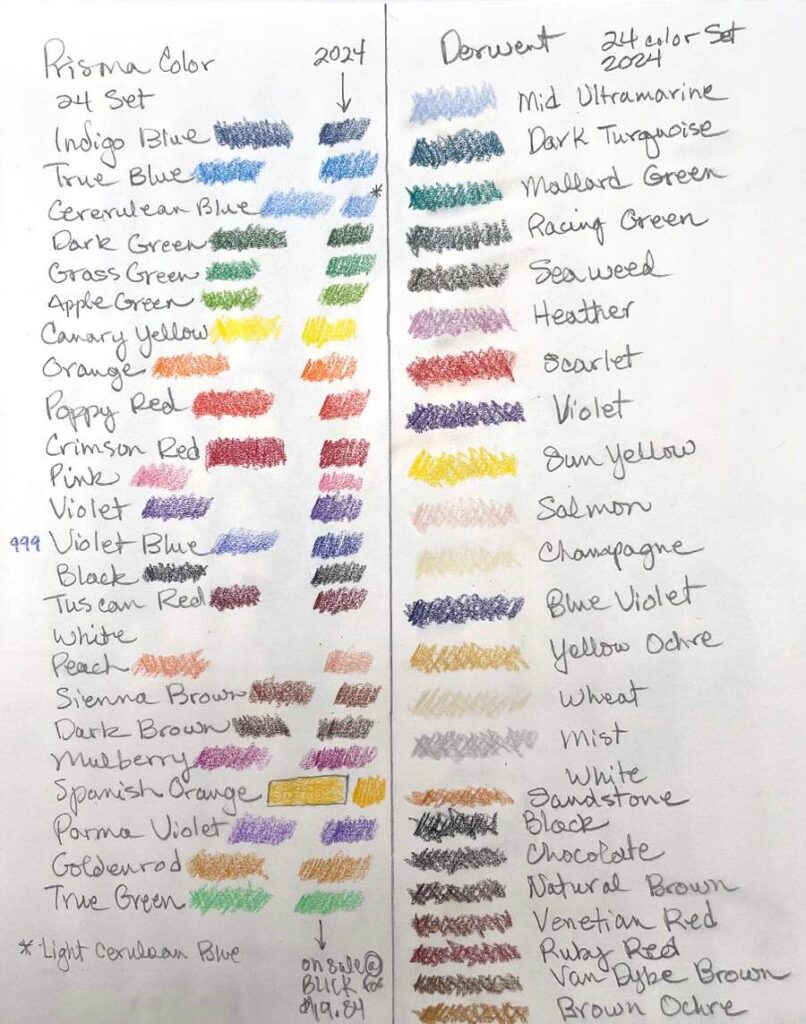 Prisma Color
24 Set
2024
Indigo Blue
True Blue
Cererulean Blue *
Dark Green
Grass Green
Apple Green
Canary Yellow
Orange
Poppy Red
Crimson Red
Pink
Violet
999 Violet Blue
Black
Tuscan Red
White
Peach
Sienna Brown
Dark Brown
Mulberry
Spanish Orange
Parma Violet
Goldenrod
True Green
* Light Cerulean Blue
on sale @
BLICK
$19.84
Derwent 24 color Set
2024
Mid Ultramarine
Dark Turquoise
Mallard Green
Racing Green
Seaweed
Heather
Scarlet
Violet
Sun Yellow
Salmon
Champagne
Blue Violet
Yellow Ochre
Wheat
Mist
White
Sandstone
Black
Chocolate
Natural Brown
Venetian Red
Ruby Red
Van Dybe Brown
Brown Ochre